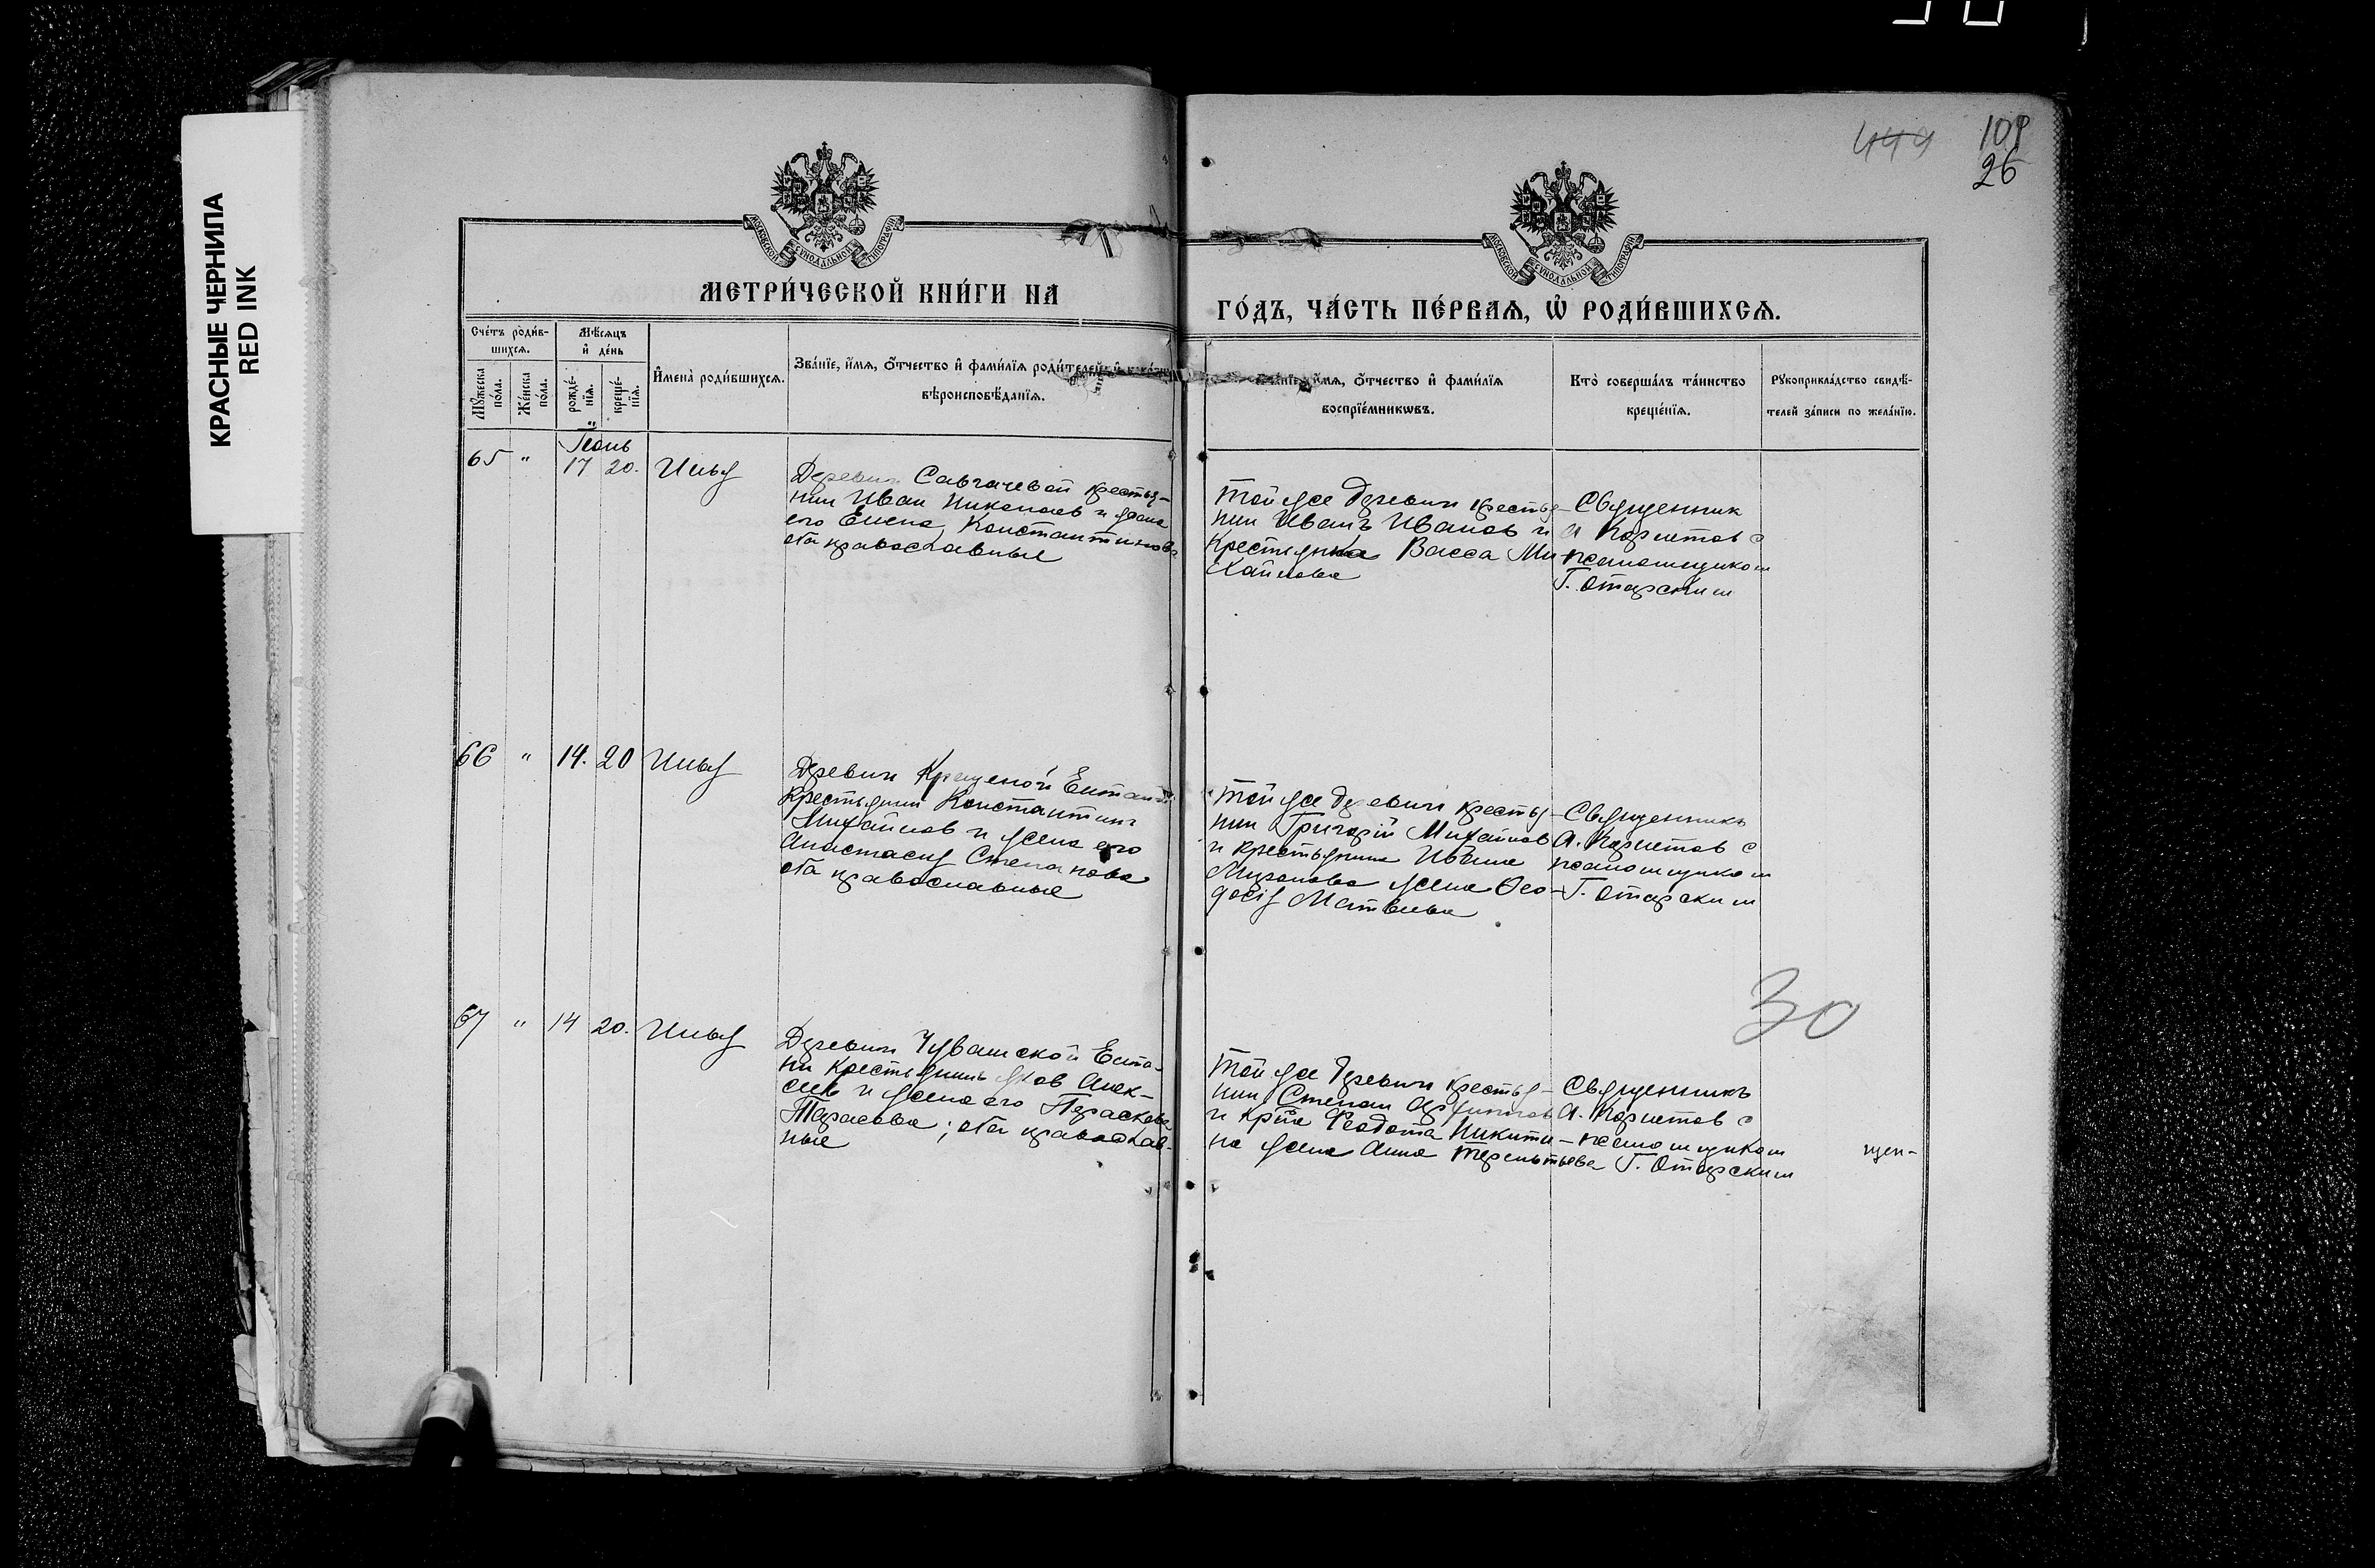 КРАСНЫЕ ЧЕРНИЛА
RED INK
449
109
26
МОСКОВСКОЙ СѴНОДАЛЬНОЙ ТИПОГРАФІИ
МОСКОВСКОЙ СѴНОДАЛЬНОЙ ТИПОГРАФІИ
МЕТРИ́ЧЕСКОЙ КНИ́ГИ НА
ГО́ДЪ, ЧА́СТЬ ПЕ́РВАѦ, Ѡ҆ РОДИ́ВШИХСѦ.
Сче́тъ роди́в-
шихсѧ.
Мѣ́сѧцъ
и҆ де́нь
Мꙋ́жеска
по́ла.
Же́нска
по́ла.
рожде́-
нїѧ.
креще́-
нїѧ.
И҆мена̀ роди́вшихсѧ.
Зва́нїе, и҆́мѧ, ѻ҆́тчество и҆ фамі́лїѧ роди́телей, и҆
вѣроисповѣ́данїѧ.
и҆́мѧ, ѻ҆́тчество и҆ фамі́лїѧ
воспрїе́мникѡвъ.
Кто̀ соверша́лъ та́инство
креще́нїѧ.
Рꙋкоприкла́дство свидѣ́-
телей за́писи по жела́нїю.
Іюнь
65 " 17 20. Илья
Деревни Савгачевой крестья-
нин Иван Николаев и жена
его Елена Константинова
оба православные
Той же деревни крестья-
нин Иванъ Иванов и
Крестьянка Васса Ми-
хайлова
Священник
с
псаломщиком
Г. Отарским
66 " 14. 20 Илья
Деревни Крещеной Елтани
Крестьянин Константин
Михайлов и жена его
Анастасия Степанова
оба православные
Той же деревни кресть-
нин Григорій Михайлов
и крестьянина Ивана
жена Фео-
досія Матвеева
Священникъ
А. с
псаломщиком
Г. Отарским
30
67 " 14 20. Илья
Деревни Чувашской Елта-
ни Крестьянинъ Яков Алек-
сеев и жена его Параскева
Тарасова; оба православ-
ные
Той же деревни крестья-
нин Степан
и Феодота Никити-
на жена Анна Терентьева
Священникъ
А. с
псаломщиком
Г. Отарским
щен-